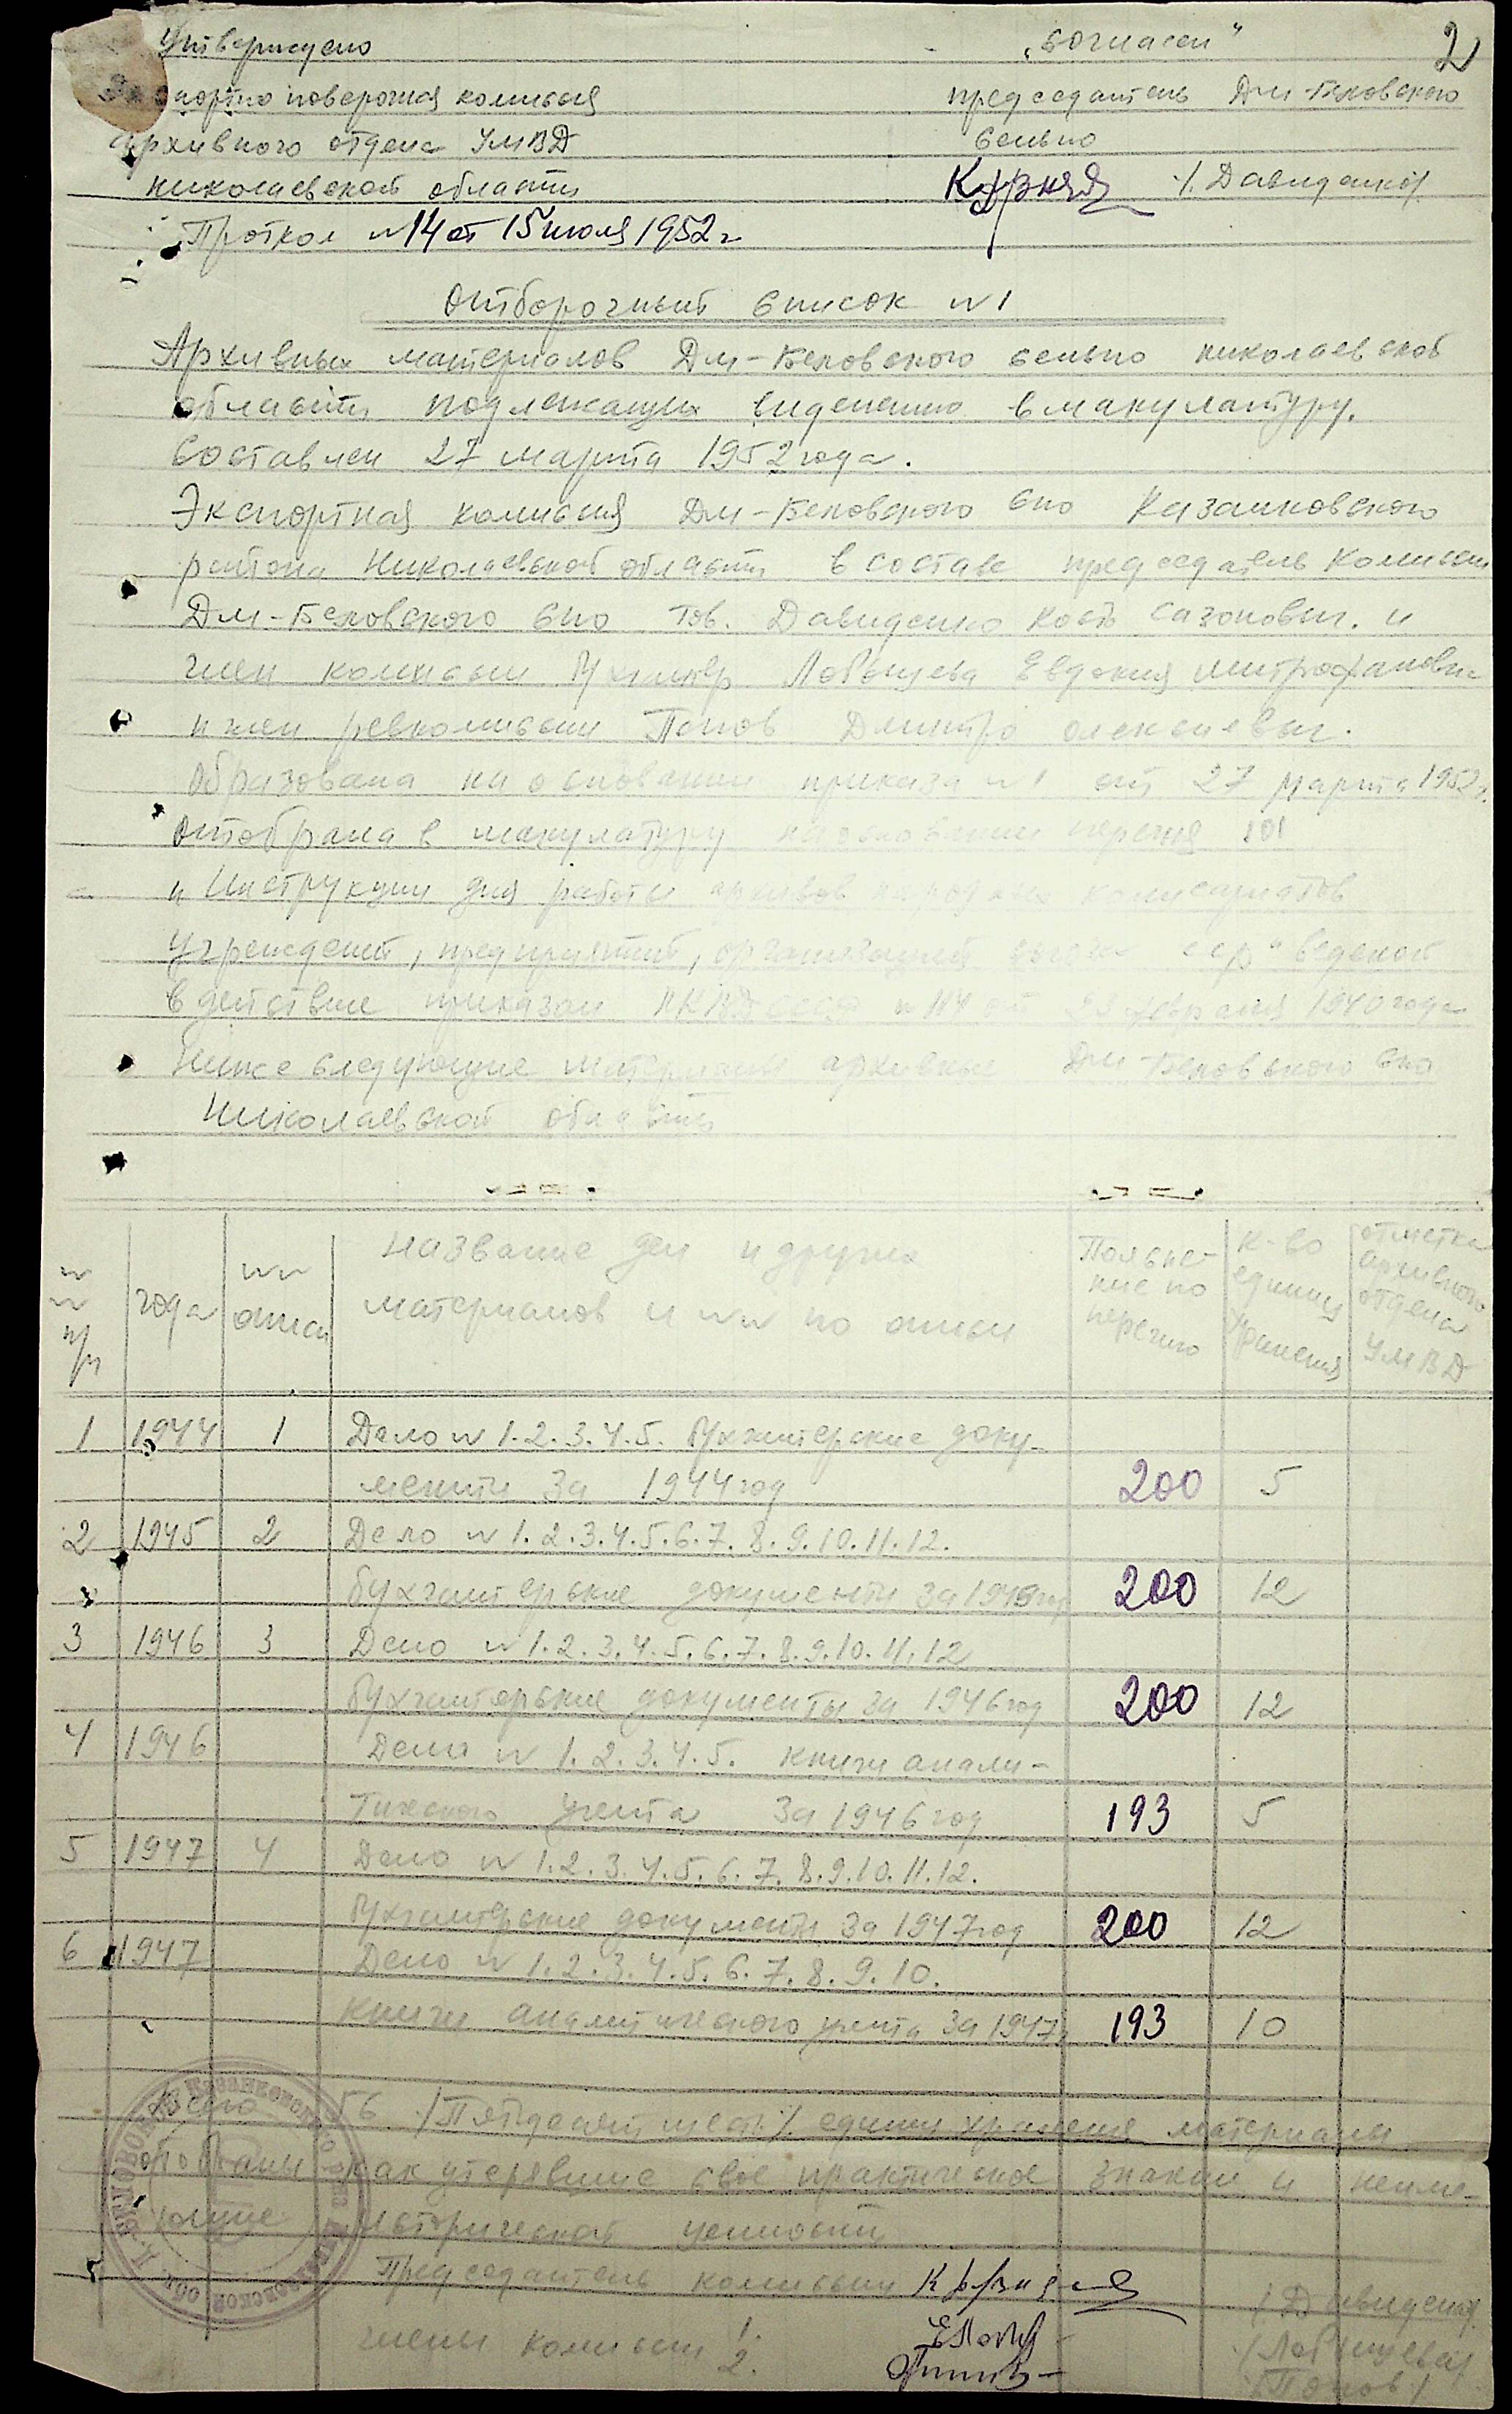 Утверждено
„Согласен“
2
портно поверочная комисия
председатель Дм-Беловского
архивного отдела УМВД
сельпо
николаевской области
/. Давиденко/.
Протокол № 14 от 15 июля 1952 г
Отборочный список № 1
Архивных материалов Дм-Беловского сельпо николаевской
области подлежащих виделению в макулатуру.
Составлен 27 марта 1952 года.
Экспортная комисия Дм-Беловского спо Казанковского
района Николаевской области в составе председатель Комисии
Дм-Беловского спо тов. Давиденко Кость Сазонович. и
член комисии бухгалтер Лобынцева Евдокия митрофановна
и член ревкомисии Попов Дмитро алексеевич.
Образована на основании приказа № 1 от 27 марта 1952 г.
Отобрала в макулатуру на основании перечня 101
и Инструкции для работы архивов народных комисариатов
учреждений, предприятий, организаций союза сср" веденой
в действие приказом НКВД СССР № 114 от 23 февраля 1940 года
Ниже следующие материалы архивные Дм-Беловского спо
Николаевской области
№ № п/п
года
№№ описи
название дел и других материалов и №№ по описи
Поясне-ние по перечню
к-во единиц хранения
отметка архивного отдела УМВД
1 1944 1 Дело № 1.2.3.4.5. Бухгалтерские доку-
менти за 1944 год 200 5
2 1945 2 Дело № 1.2.3.4.5.6.7.8.9.10.11.12.
бухгалтерские документи за 1945 год 200 12
3 1946 3 Дело № 1.2.3.4.5.6.7.8.9.10.11.12
бухгалтерские документы за 1946 год 200 12
4 1946 Дела № 1.2.3.4.5. Книги анали-
тического учета за 1946 год 193 5
5 1947 4 Дело № 1.2.3.4.5.6.7.8.9.10.11.12.
Бухгалтерские документи за 1947 год 200 12
6 1947 Дело № 1.2.3.4.5.6.7.8.9.10.
Книги аналитического учета за 1947 г 193 10
Всего 56 /Пятдесят шесть/. единиц хранения материалы
отобраны как утерявшие своё практическое значение и неиме-
ющие исторической ценности
Председатель комисии /Давиденко/
члены комисии 1. /Лобынцева/
2. /Попов/